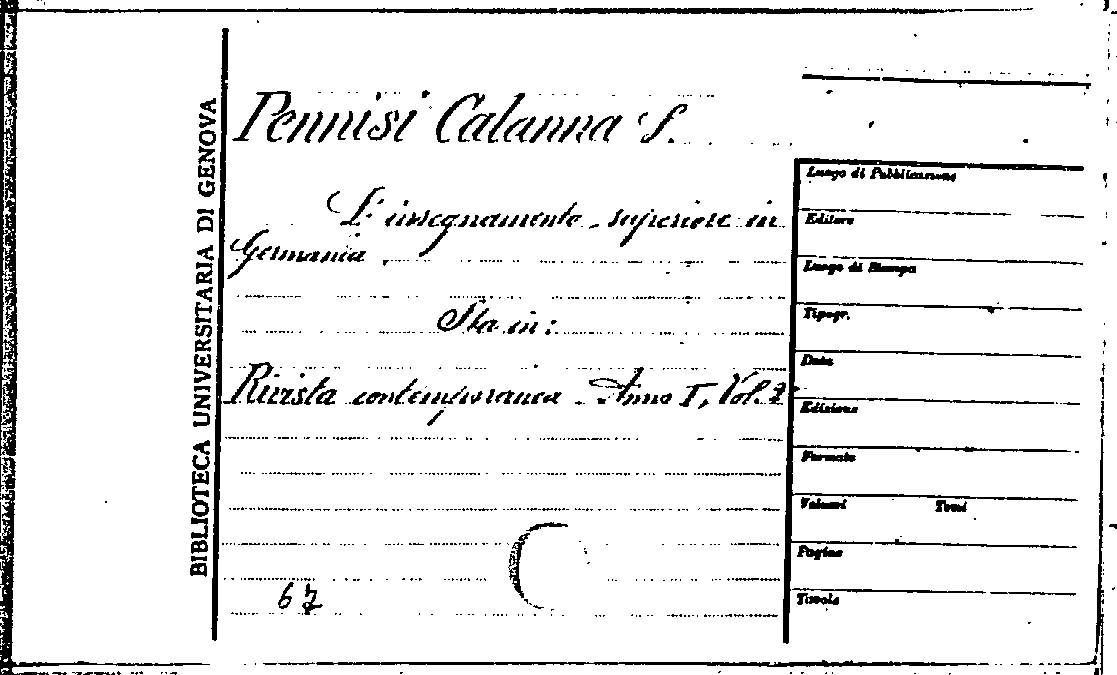 BIBLIOTECA UNIVERSITARIA DI GENOVA
Pennisi Calanna S.
L'insegnamento superiore in
Germania.
Sta in:
Rivista contemporanea. Anno I, Vol. 2º
67
Luogo di Pubblicazione
Editore
Luogo di Stampa
Tipogr.
Data
Edizione
Formato
Volumi Tomi
Pagine
Tavole